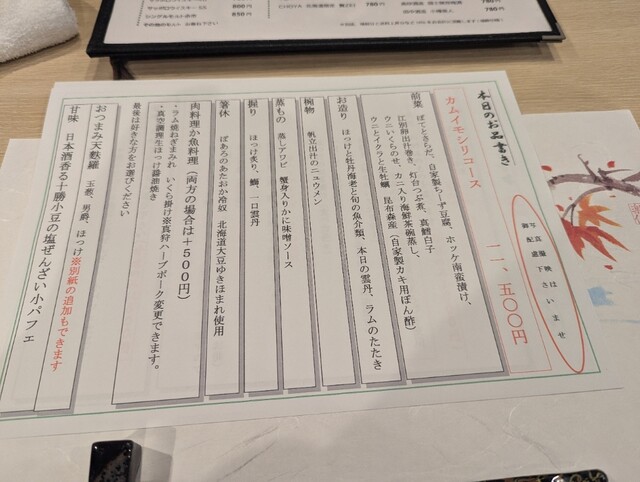 本日のお品書き
写真撮影はいませ
御配慮下さ
カムイモシリコース
一一、五〇〇円
前菜 ぱぐときさらだ、自家製ちーず豆腐、ホッケ南蛮漬け、
江別卵出汁巻き、灯台つぶ煮、真鱈白子
ウニいくらのせ、カニ入り海鮮茶碗蒸し、
ウニとイクラと生牡蠣 昆布森産(自家製カキ用ぽん酢)
お造り ほっけと牡丹海老と旬の魚介類、本日の雲丹、ラムのたたき
椀物 帆立出汁のニュウメン
蒸もの 蒸しアワビ 蟹身入りかに味噌ソース
握り ほっけ炙り、鯛、一口雲丹
箸休 ぱあろのあたおか冷奴 北海道大豆ゆきほまれ使用
肉料理か魚料理(両方の場合は+500円)
・ラム焼ねぎまみれ いくら掛け※真狩ハーブポーク変更できます。
・真空調理生ほっけ醤油焼き
最後は好きな方をお選びください
おつまみ天麩羅 玉葱、男爵、ほっけ※別紙の追加もできます
甘味 日本酒香る十勝小豆の塩ぜんざい小パフェ
800円
シングルモルト水
850円
780円
780円
780円